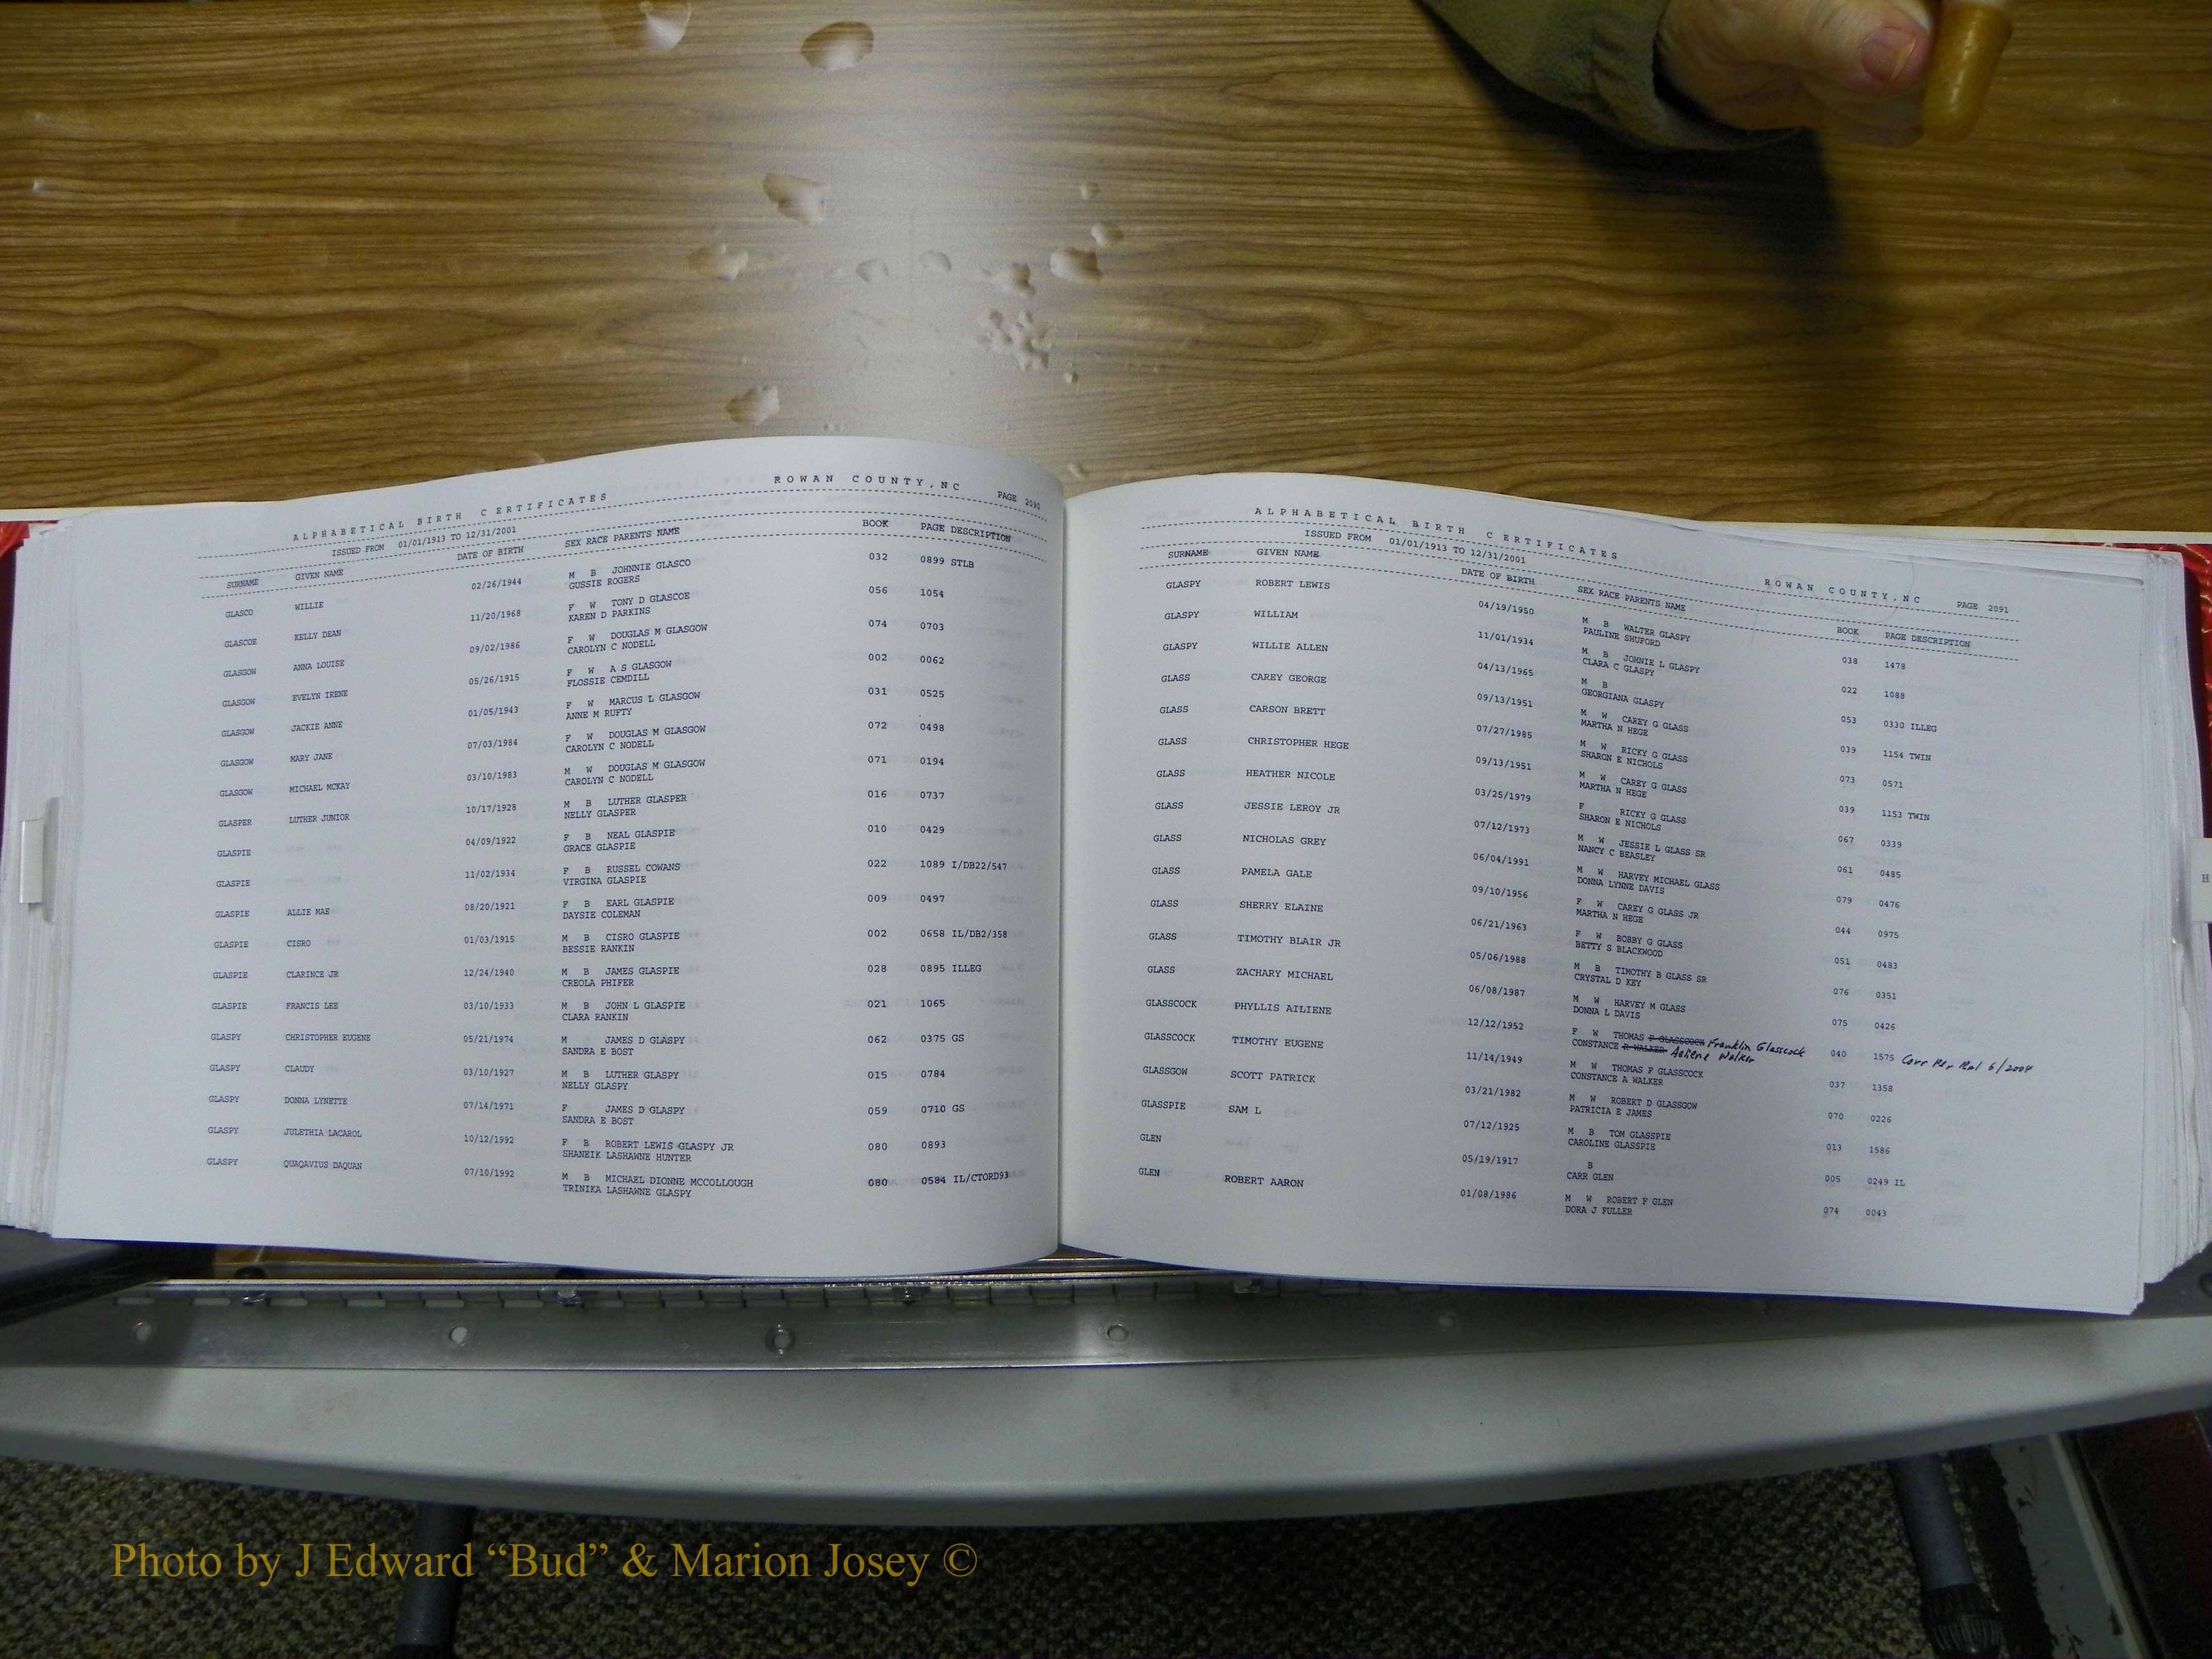 ALPHABETICAL BIRTH CERTIFICATES ROWAN COUNTY,NC PAGE 2090
ISSUED FROM 01/01/1913 TO 12/31/2001
SURNAME GIVEN NAME DATE OF BIRTH SEX RACE PARENTS NAME BOOK PAGE DESCRIPTION
GLASCO WILLIE 02/26/1944 M B JOHNNIE GLASCO 032 0899 STLB
GUSSIE ROGERS
GLASCOE KELLY DEAN 11/20/1968 F W TONY D GLASCOE 056 1054
KAREN D PARKINS
GLASGOW ANNA LOUISE 09/02/1986 F W DOUGLAS M GLASGOW 074 0703
CAROLYN C NODELL
GLASGOW EVELYN IRENE 05/26/1915 F W A S GLASGOW 002 0062
FLOSSIE CEMDILL
GLASGOW JACKIE ANNE 01/05/1943 F W MARCUS L GLASGOW 031 0525
ANNE M RUFTY
GLASGOW MARY JANE 07/03/1984 F W DOUGLAS M GLASGOW 072 0498
CAROLYN C NODELL
GLASGOW MICHAEL MCKAY 03/10/1983 M W DOUGLAS M GLASGOW 071 0194
CAROLYN C NODELL
GLASPER LUTHER JUNIOR 10/17/1928 M B LUTHER GLASPER 016 0737
NELLY GLASPER
GLASPIE 04/09/1922 F B NEAL GLASPIE 010 0429
GRACE GLASPIE
GLASPIE 11/02/1934 F B RUSSEL COWANS 022 1089 I/DB22/547
VIRGINA GLASPIE
GLASPIE ALLIE MAE 08/20/1921 F B EARL GLASPIE 009 0497
DAYSIE COLEMAN
GLASPIE CISRO 01/03/1915 M B CISRO GLASPIE 002 0658 IL/DB2/358
BESSIE RANKIN
GLASPIE CLARINCE JR 12/24/1940 M B JAMES GLASPIE 028 0895 ILLEG
CREOLA PHIFER
GLASPIE FRANCIS LEE 03/10/1933 M B JOHN L GLASPIE 021 1065
CLARA RANKIN
GLASPY CHRISTOPHER EUGENE 05/21/1974 M JAMES D GLASPY 062 0375 GS
SANDRA E BOST
GLASPY CLAUDY 03/10/1927 M B LUTHER GLASPY 015 0784
NELLY GLASPY
GLASPY DONNA LYNETTE 07/14/1971 F JAMES D GLASPY 059 0710 GS
SANDRA E BOST
GLASPY JULETHIA LACAROL 10/12/1992 F B ROBERT LEWIS GLASPY JR 080 0893
SHANEIK LASHAWNE HUNTER
GLASPY QUAQAVIUS DAQUAN 07/10/1992 M B MICHAEL DIONNE MCCOLLOUGH 080 0584 IL/CTORD93
TRINIKA LASHAWNE GLASPY
ALPHABETICAL BIRTH CERTIFICATES ROWAN COUNTY,NC PAGE 2091
ISSUED FROM 01/01/1913 TO 12/31/2001
SURNAME GIVEN NAME DATE OF BIRTH SEX RACE PARENTS NAME BOOK PAGE DESCRIPTION
GLASPY ROBERT LEWIS 04/19/1950 M B WALTER GLASPY 038 1478
PAULINE SHUFORD
GLASPY WILLIAM 11/01/1934 M B JOHNIE L GLASPY 022 1088
CLARA C GLASPY
GLASPY WILLIE ALLEN 04/13/1965 M B 053 0330 ILLEG
GEORGIANA GLASPY
GLASS CAREY GEORGE 09/13/1951 M W CAREY G GLASS 039 1154 TWIN
MARTHA N HEGE
GLASS CARSON BRETT 07/27/1985 M W RICKY G GLASS 073 0571
SHARON E NICHOLS
GLASS CHRISTOPHER HEGE 09/13/1951 M W CAREY G GLASS 039 1153 TWIN
MARTHA N HEGE
GLASS HEATHER NICOLE 03/25/1979 F RICKY G GLASS 067 0339
SHARON E NICHOLS
GLASS JESSIE LEROY JR 07/12/1973 M W JESSIE L GLASS SR 061 0485
NANCY C BEASLEY
GLASS NICHOLAS GREY 06/04/1991 M W HARVEY MICHAEL GLASS 079 0476
DONNA LYNNE DAVIS
GLASS PAMELA GALE 09/10/1956 F W CAREY G GLASS JR 044 0975
MARTHA N HEGE
GLASS SHERRY ELAINE 06/21/1963 F W BOBBY G GLASS 051 0483
BETTY S BLACKWOOD
GLASS TIMOTHY BLAIR JR 05/06/1988 M B TIMOTHY B GLASS SR 076 0351
CRYSTAL D KEY
GLASS ZACHARY MICHAEL 06/08/1987 M W HARVEY M GLASS 075 0426
DONNA L DAVIS
GLASSCOCK PHYLLIS AILIENE 12/12/1952 F W THOMAS F GLASSCOCK Franklin Glasscock 040 1575 Corr Per 6/2004
CONSTANCE WALKER Walker
GLASSCOCK TIMOTHY EUGENE 11/14/1949 M W THOMAS F GLASSCOCK 037 1358
CONSTANCE A WALKER
GLASSGOW SCOTT PATRICK 03/21/1982 M W ROBERT D GLASSGOW 070 0226
PATRICIA E JAMES
GLASSPIE SAM L 07/12/1925 M B TOM GLASSPIE 013 1586
CAROLINE GLASSPIE
GLEN 05/19/1917 B 005 0249 IL
CARR GLEN
GLEN ROBERT AARON 01/08/1986 M W ROBERT F GLEN 074 0043
DORA J FULLER
H
Photo by J Edward “Bud” & Marion Josey ©